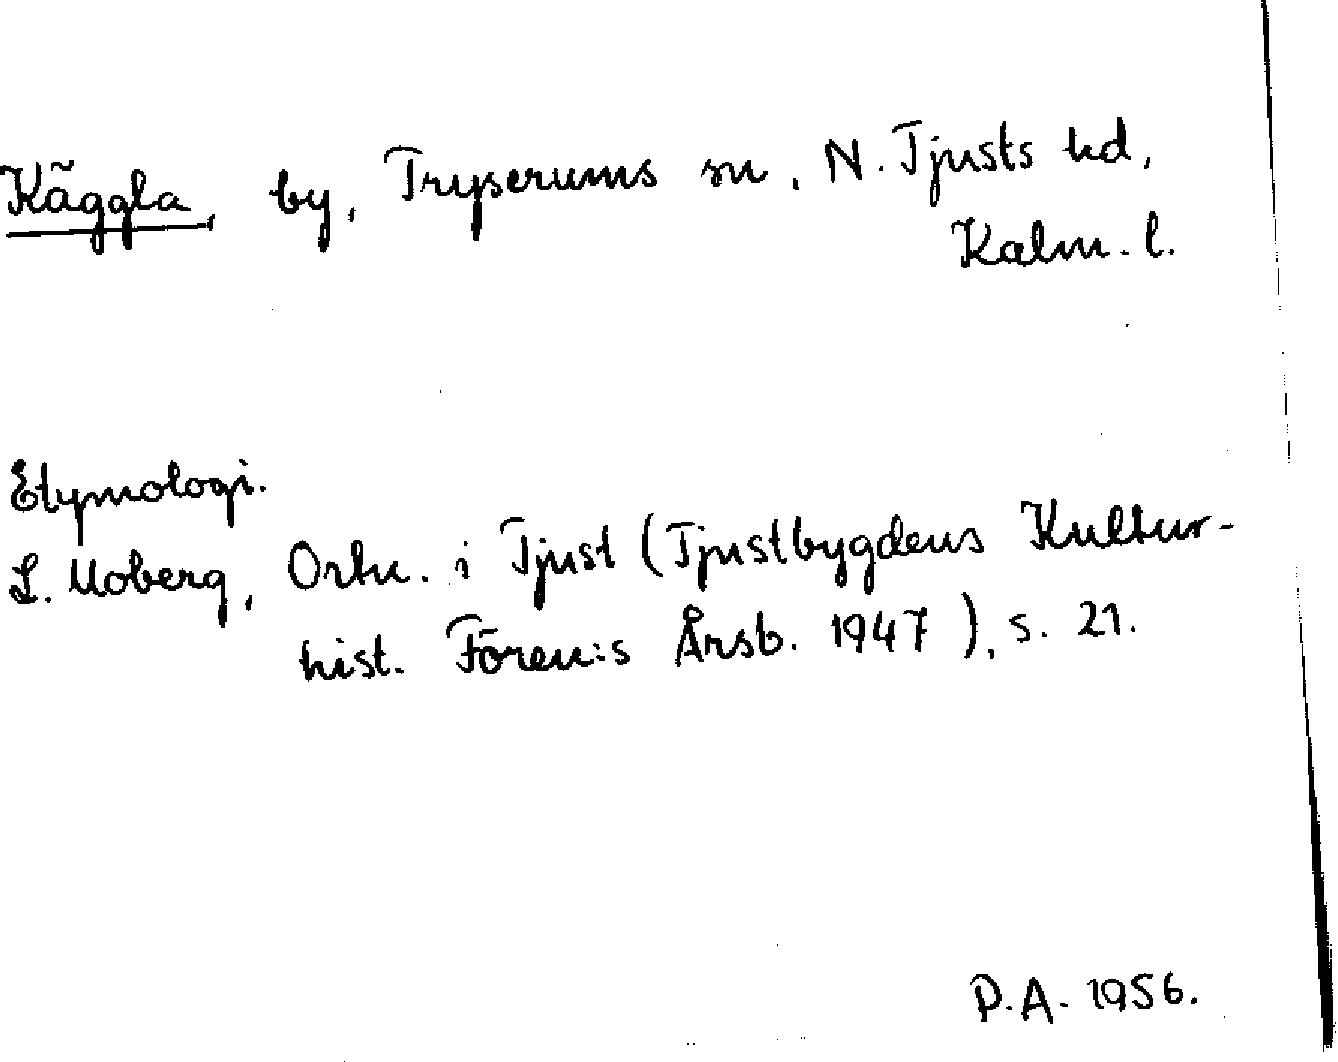 Käggla, by, Tryserums sn, N. Tjusts hd,
Kalm. l.
Etymologi.
L. Moberg, Ortn. i Tjust (Tjustbygdens Kultur-
hist. Fören:s Årsb. 1947), s. 21.
P.A. 1956.